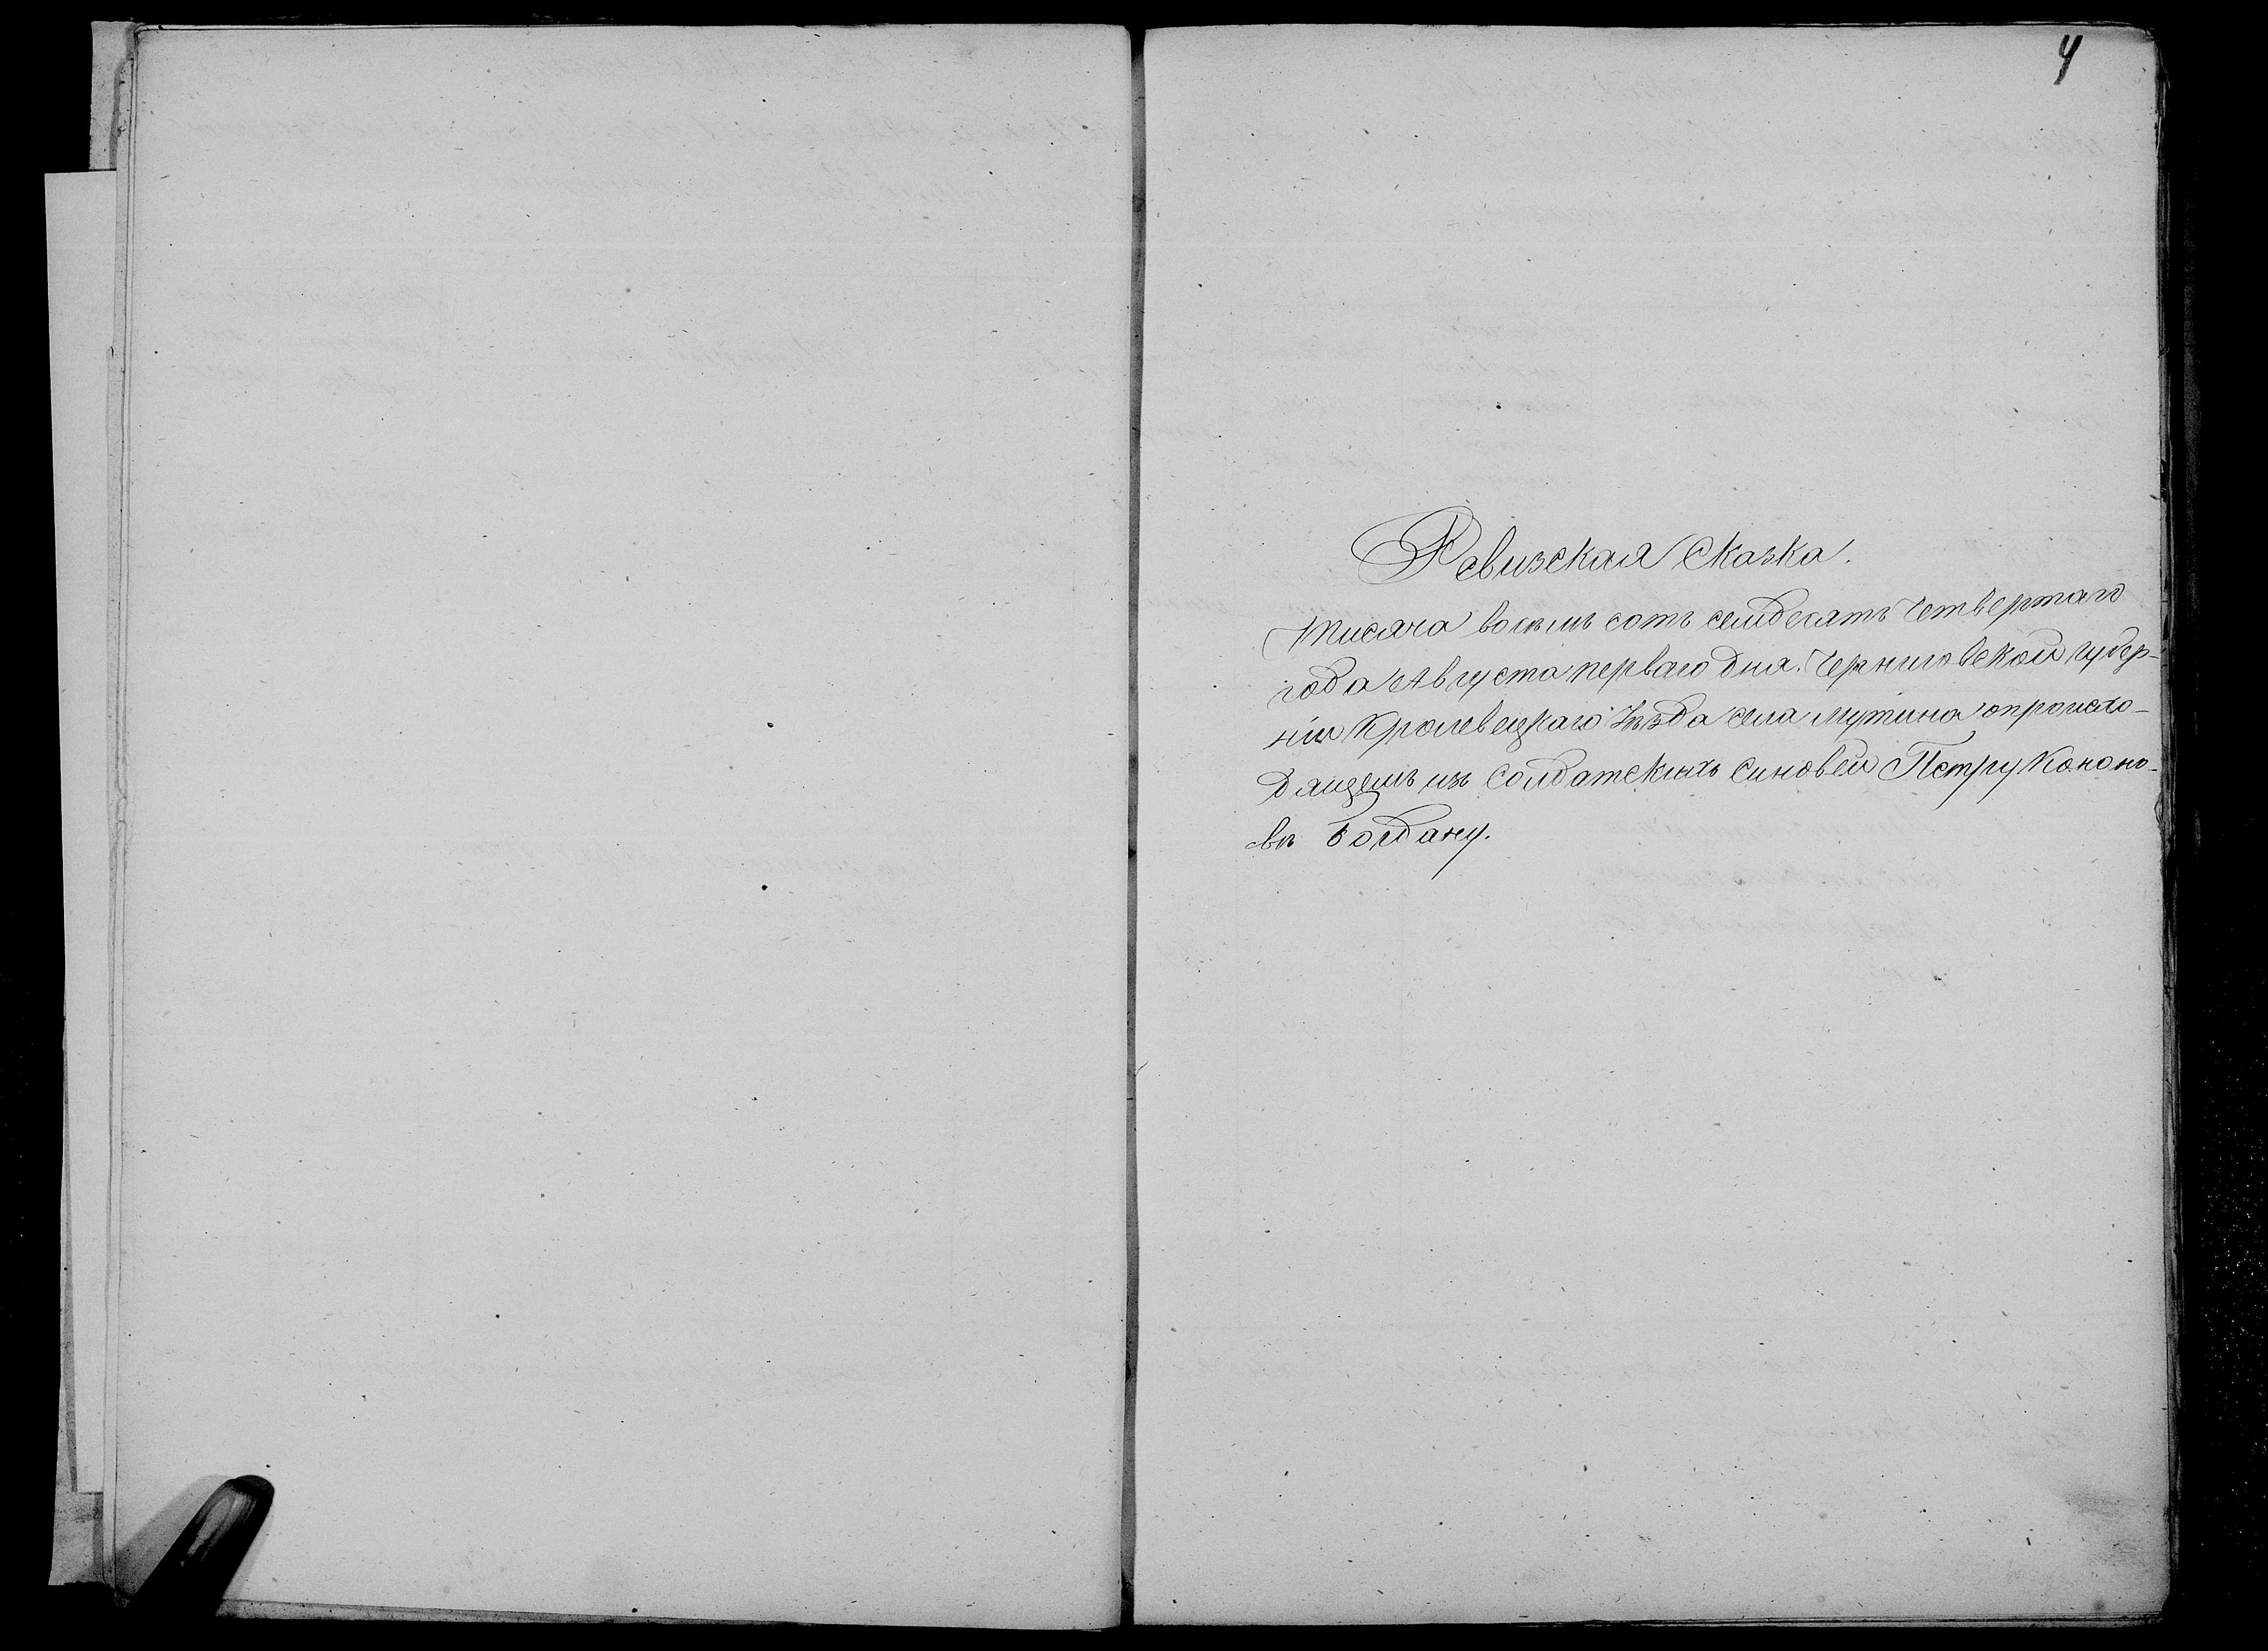 4
Ревизская Сказка.
Тисяча восемь сотъ семдесятъ Четвертаго
года Августа перваго Дня. Черниговской губер-
ніи Кролевецкаго Уезда села Мутина опроисхо-
Дящемъ изъ Солдатскихъ Синовей Петру Кононо-
въ Богдану.